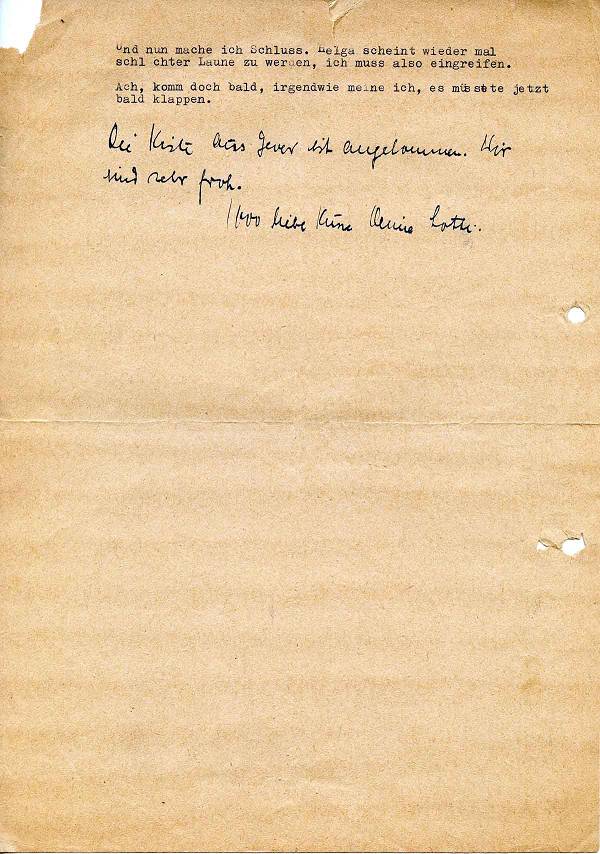 Und nun mache ich Schluss. Helga scheint wieder mal
schl chter Laune zu werden, ich muss also eingreifen.
Ach, komm doch bald, irgendwie meine ich, es müsste jetzt
bald klappen.
Die Kiste aus Jever ist angekommen. Wir
sind sehr froh.
1000 liebe Küsse Deine Lotte.